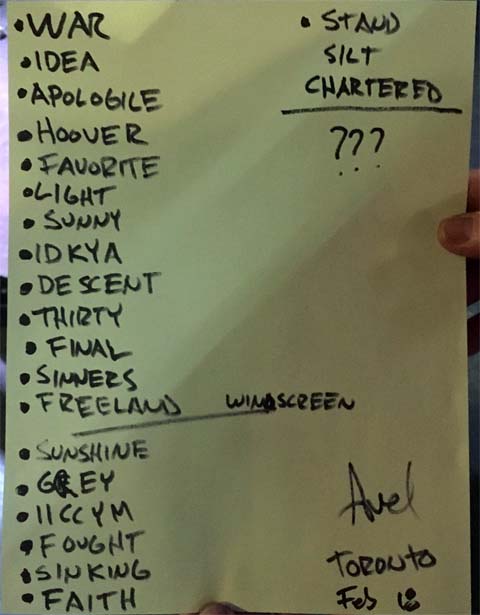 • WAR
• IDEA
• APOLOGILE
• HOOVER
• FAVORITE
• LIGHT
• SUNNY
• IDKYA
• DESCENT
• THIRTY
• FINAL
• SINNERS
• FREELAND WINDSCREEN
• SUNSHINE
• GREY
• IICCYM
• FOUGHT
• SINKING
• FAITH
• STAND
SILT
CHARTERED
???
...
TORONTO
Feb 18